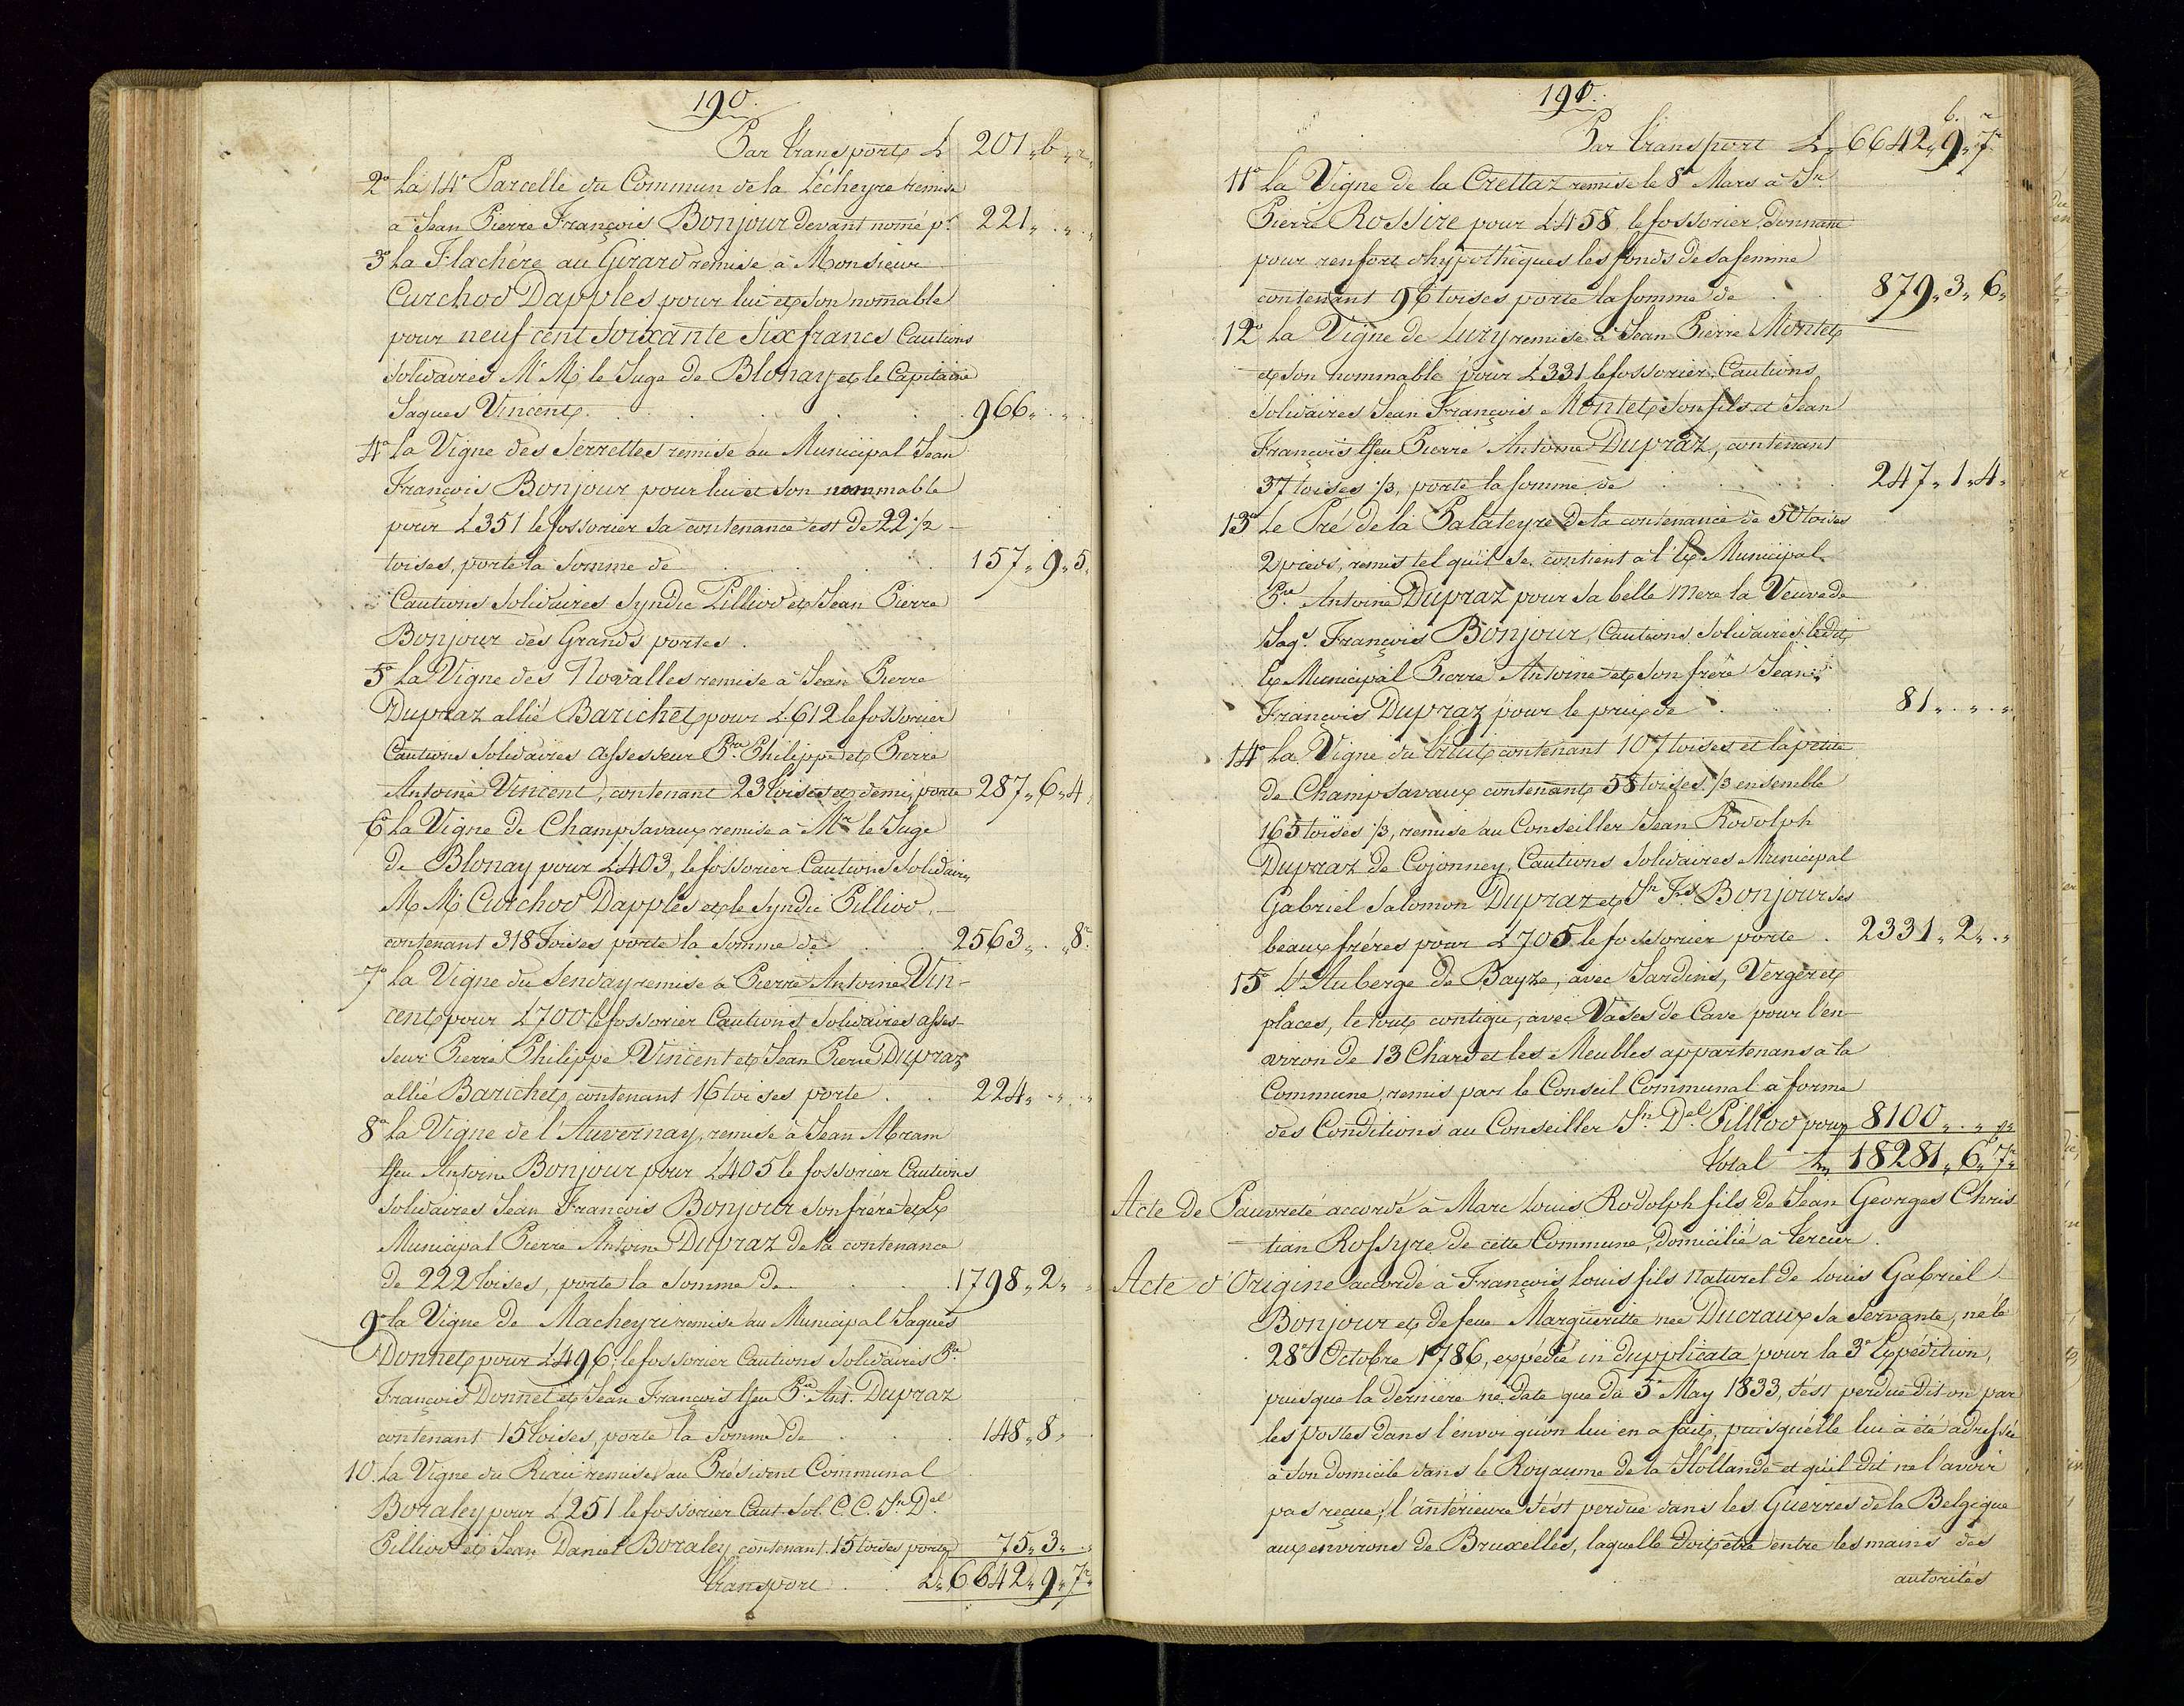 190.
Par transport L 201,, b ,, r,,
2° La 14e Parcelle du Commun de la Lécheyre remise
à Jean Pierre François Bonjour devant nomé pr. 221,, . ,, .
3° La Flachére au Girard remise à Monsieur
Curchod Dapples pour lui et son nomable
pour neuf cent soixante six francs Cautions
solidaires M.M. le Juge de Blonay et le Capitaine
Jaques Vincent . . . . . 966,, . ,, .
4° La Vigne des Serrettes remise au Municipal Jean
François Bonjour pour lui et son nommable
pour L 351 le fossorier sa contenance est de 22 1/2
toises, porte la somme de . . . . 157,, 9,, 5,,
Cautions solidaires Syndic Pilliod et Jean Pierre
Bonjour des Grands portes.
5° La Vigne des Novalles remise à Jean Pierre
Dupraz allié Barichet pour L 612 le fossorier
Cautions solidaires assesseur Pre. Philippe et Pierre
Antoine Vincent, contenant 23 toises et demi, porte 287,, 6,, 4,,
6° La Vigne de Champsavaux remise à Mr. le Juge
de Blonay pour L 403,, le fossorier Cautions solidaires
M.M. Curchod Dapples et le Syndic Pilliod, -
contenant 318 Toises porte la somme de . . 2563,, . ,, 8r.
7° La Vigne du Senday remise à Pierre Antoine Vin-
cent pour L 700 le fossorier Cautions solidaires asses-
seur Pierre Philippe Vincent et Jean Pierre Dupraz
allié Barichet, contenant 16 toises porte . . 224,, . ,, . ,,
8° La Vigne de l'Auvernay, remise à Jean Abram
ffeu Antoine Bonjour pour L 405 le fossorier Cautions
solidaires Jean François Bonjour son frére et Ex
Municipal Pierre Antoine Dupraz de la contenance
de 222 toises, porte la somme de . . . 1798,, 2,, ,,
9° La Vigne de Macheyri remise au Municipal Jaques
Donnet pour L 496,, le fossorier Cautions solidaires Pre.
François Donnet et Jean François ffeu Pre. Ant. Dupraz
contenant 15 toises, porte la somme de . . . 148,, 8,, .
10. La Vigne du Riau remise au Président Communal
Boraley pour L 251 le fossorier Caut. Sol. C.C. Jn. Del.
Pilliod et Jean Daniel Boraley, contenant 15 toises porte 75,, 3,, . ,,
Transport . . . L,, 6642,, 9,, 7r,,
191.
Par transport L,, 6642,, 9b,, 7r
11° La Vigne de la Crettaz remise le 8e Mars à Sr.
Pierre Rossire pour L 458, le fossorier, donnant
pour renfort d'hypothèques les fonds de sa femme
contenant 96 toises porte la somme de . . 879,, 3,, 6,,
12° La Vigne de Lury remise à Jean Pierre Montet
et son nommable pour L 331 le fossorier, Cautions
solidaires Jean François Montet son fils et Jean
François ffeu Pierre Antoine Dupraz, contenant
37 toises 1/3, porte la somme de . . . . 247,, 1,, 4,,
13° Le Pré de la Palateyre de la contenance de 50 toises
2 pieds, remis tel qu'il se contient à l'Ex Municipal
Pre. Antoine Dupraz pour sa belle Mere la Veuve de
Jaqs. François Bonjour, Cautions solidaires ledit
Ex Municipal Pierre Antoine et son frère Jean
François Dupraz pour le prix de . . . 81,, . ,, . ,,
14° La Vigne du Crut contenant 107 toises et la petite
de Champsavaux contenant 58 toises 1/3 ensemble
165 toises 1/3, remise au Conseiller Jean Rodolph
Dupraz de Cojonney, Cautions solidaires Municipal
Gabriel Salomon Dupraz et Jn. Fs. Bonjour ses
beaux frères pour L 705 le fossorier porte . 2331,, 2,, . ,,
15° L'Auberge de Bayze, avec Jardins, Verger et
places, le tout contigu, avec Vases de Cave pour l'en-
viron de 13 Chars et les Meubles appartenans à la
Commune, remis par le Conseil Communal à forme
des Conditions au Conseiller Jn. Del. Pilliod pour 8100,, . ,, ,,
Total L,, 18281,, 6b,, 7r,,
Acte de Pauvreté accordé à Marc Louis Rodolph fils de Jean Georges Chris-
tian Rossyre de cette Commune, domicilié à Tercier.
Acte d'Origine accordé à François Louis fils Naturel de Louis Gabriel
Bonjour et de feue Margueritte née Ducraux sa servante, né le
28e Octobre 1786, expédié in dupplicata pour la 3e Expédition,
puisque la dernière ne date que du 5e May 1833, s'est perdue dit-on par
les postes dans l'envoi qu'on lui en a fait, puisqu'elle lui à été adressée
à son domicile dans le Royaume de la Hollande et qu'il dit ne l'avoir
pas reçue; l'antérieure s'est perdue dans les Guerres de la Belgique
aux environs de Bruxelles, laquelle doit être entre les mains des
autorités